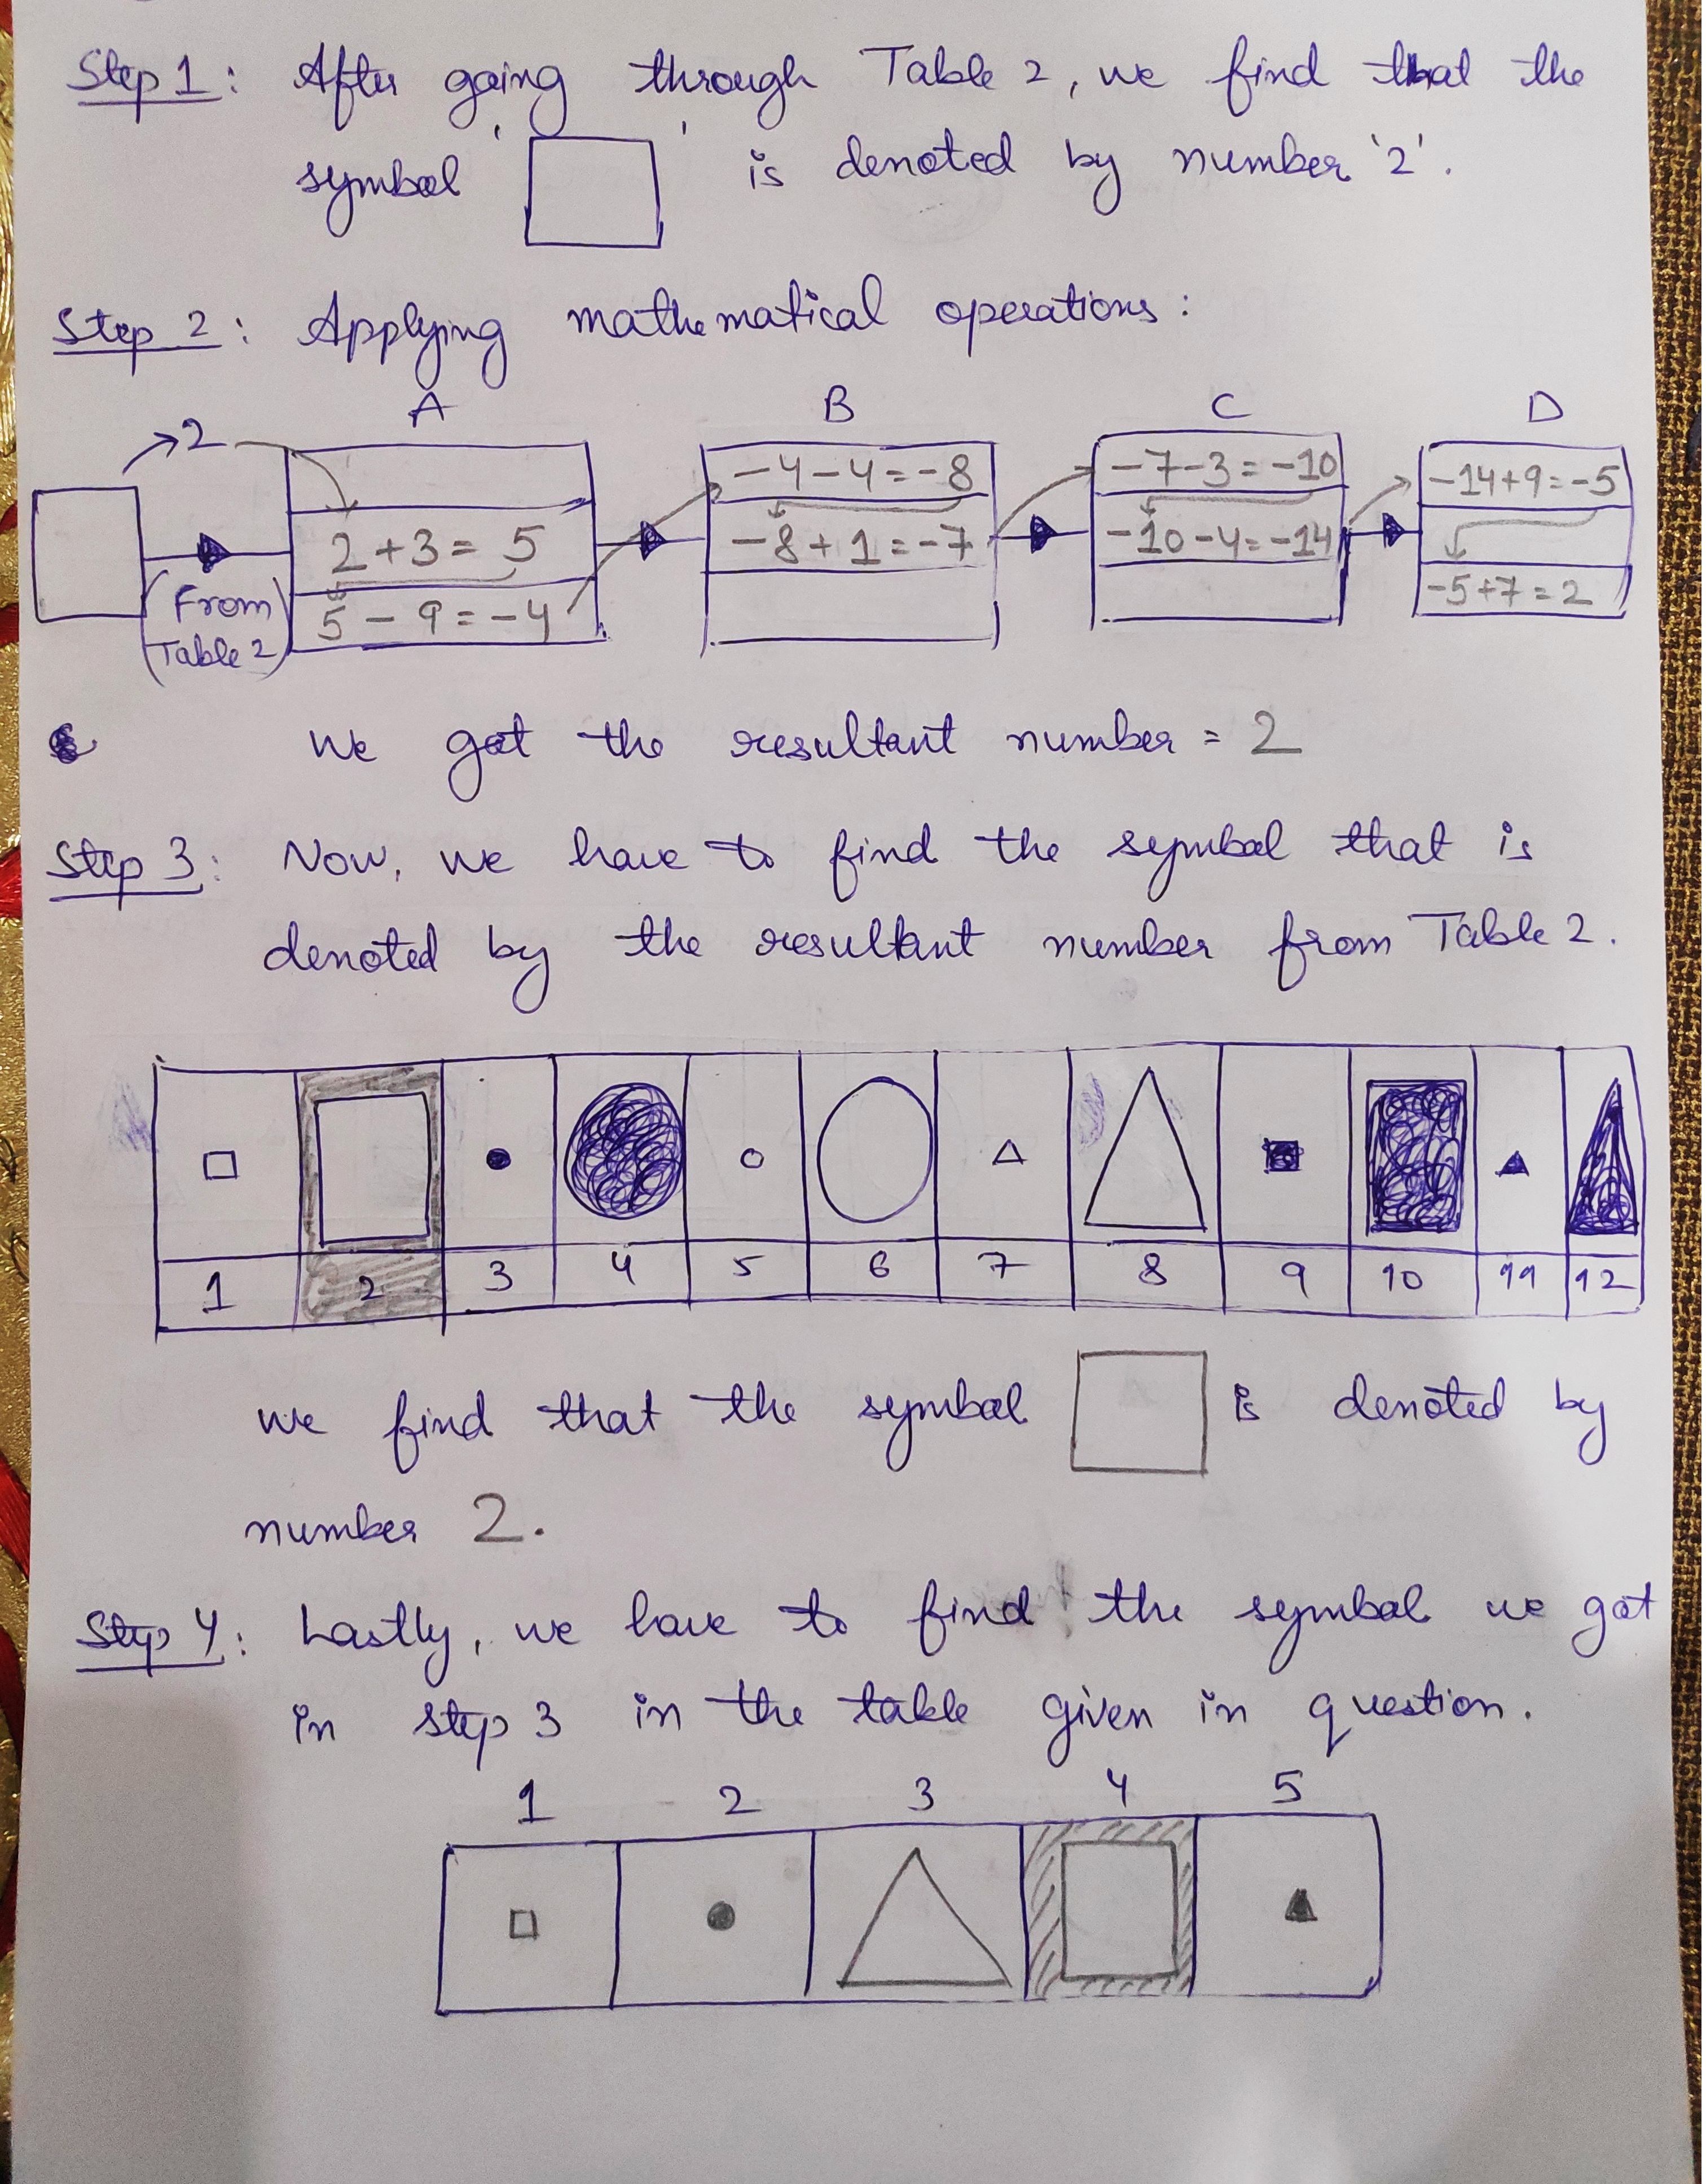 Step 1: After going through Table 2, we find that the
symbol ' ' is denoted by number '2'.
Step 2: Applying mathematical operations:
A B C D
2
-4-4=-8
-7-3=-10
-14+9=-5
2+3=5
-8+1=-7
-10-4=-14
(From
Table 2)
5-9=-4
-5+7=2
We got the resultant number = 2
Step 3: Now, we have to find the symbol that is
denoted by the resultant number from Table 2.
1 2 3 4 5 6 7 8 9 10 11 12
we find that the symbol is denoted by
number 2.
Step 4: Lastly, we have to find the symbol we got
in step 3 in the table given in question.
1 2 3 4 5